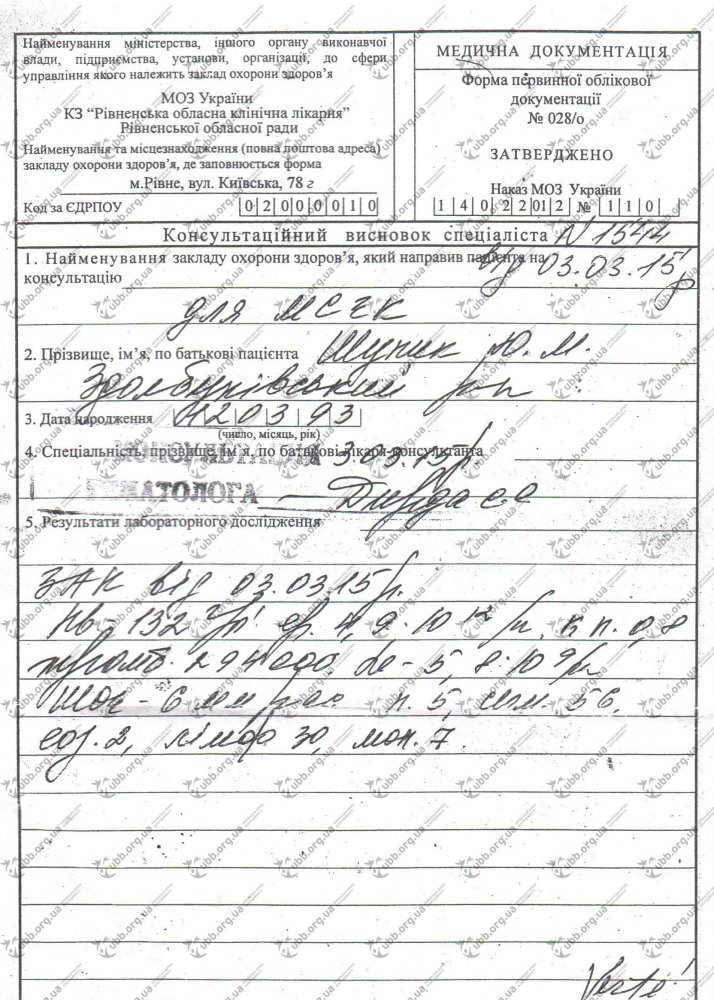 Найменування міністерства, іншого органу виконавчої
влади, підприємства, установи, організації, до сфери
управління якого належить заклад охорони здоров’я
МОЗ України
КЗ “Рівненська обласна клінічна лікарня”
Рівненської обласної ради
Найменування та місцезнаходження (повна поштова адреса)
закладу охорони здоров’я, де заповнюється форма
м.Рівне, вул. Київська, 78 г
Код за ЄДРПОУ 02000010
МЕДИЧНА ДОКУМЕНТАЦІЯ
Форма первинної облікової
документації
№ 028/о
ЗАТВЕРДЖЕНО
Наказ МОЗ України
14022012 № 110
Консультаційний висновок спеціаліста N 1544
1. Найменування закладу охорони здоров’я, який направив пацієнта на від 03.03.15 р
консультацію
для МСЕК
2. Прізвище, ім’я, по батькові пацієнта Ю. М.
Здолбунівський рн
3. Дата народження 120393
(число, місяць, рік)
4. Спеціальність, прізвище, ім’я, по батькові лікаря-консультанта 3.03.15р.
КОНСУЛЬТАЦІЯ
ГЕМАТОЛОГА
5. Результати лабораторного дослідження
ЗАК від 03.03.15р.
Нв - 132 г/л, ер. 4,9·10 12/л, к.п. 0,8
тромб. 294000 Le - 5,8·10 9/л
ШОЕ - 6 мм/год п. 5, сегм. 56,
еоз. 2, лімф 30, мон. 7.
Verte!
ubb.org.ua